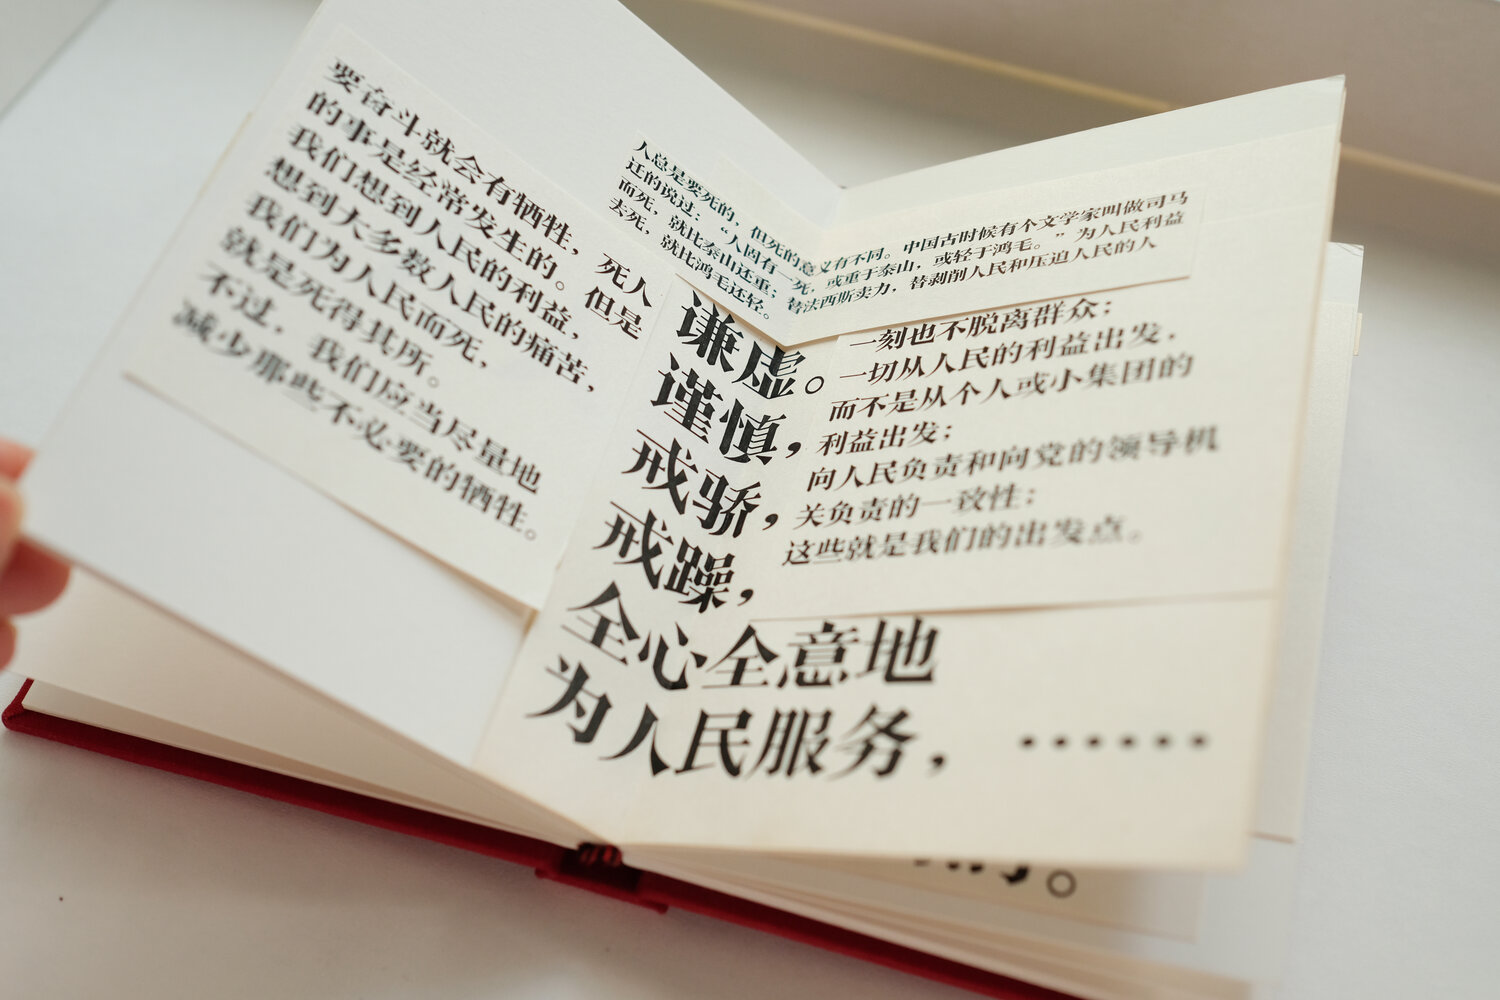 要奋斗就会有牺牲，死人
的事是经常发生的。但是
我们想到人民的利益，
想到大多数人民的痛苦，
我们为人民而死，
就是死得其所。
不过，我们应当尽量地
减少那些不必要的牺牲。
人总是要死的，但死的意义有不同。中国古时候有个文学家叫做司马
迁的说过：“人固有一死，或重于泰山，或轻于鸿毛。”为人民利益
而死，就比泰山还重；替法西斯卖力，替剥削人民和压迫人民的人
去死，就比鸿毛还轻。
谦虚。
谨慎，
戒骄，
戒躁，
全心全意地
为人民服务，……
一刻也不脱离群众；
一切从人民的利益出发，
而不是从个人或小集团的
利益出发；
向人民负责和向党的领导机
关负责的一致性；
这些就是我们的出发点。